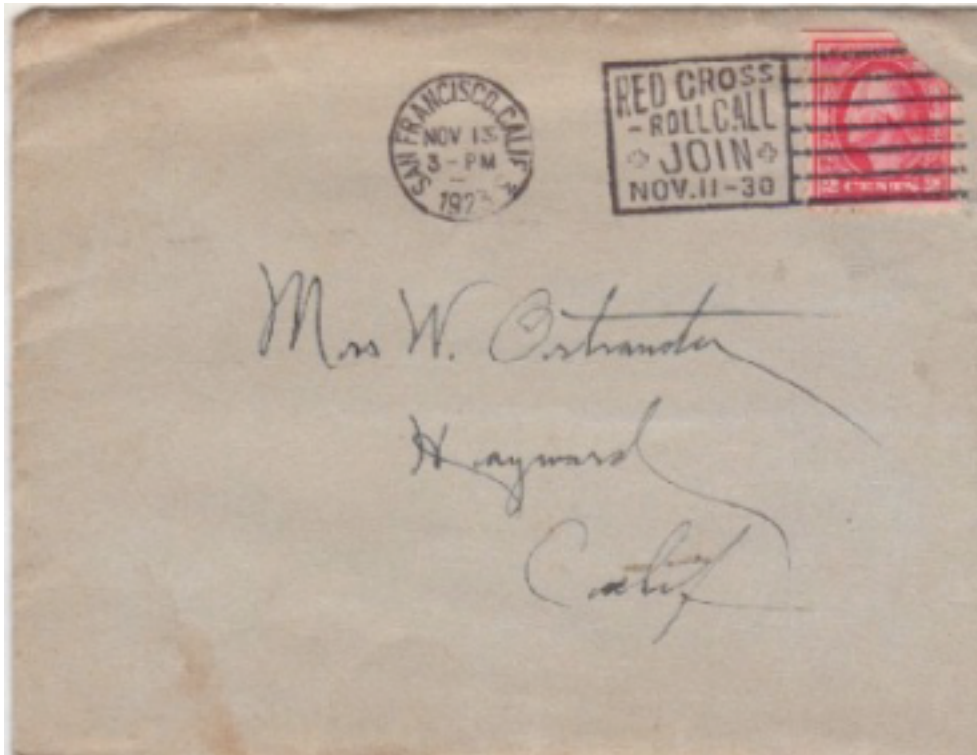 SAN FRANCISCO, CALIF
NOV 13
3-PM
RED CROSS
-ROLL CALL
JOIN
NOV. 11-30
2 CENTS 2
Mrs W. Ostrander
Hayward
Calif